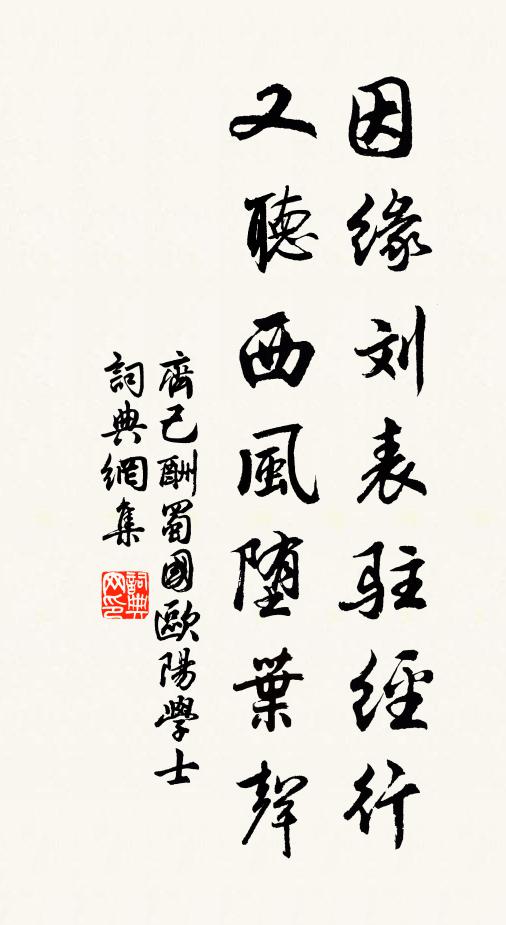 因缘刘表驻经行
又聽西風堕葉聲
齊己酬蜀國歐陽學士
詞典網集
詞典网印